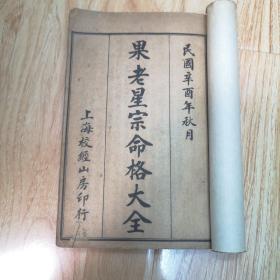 民國辛酉年秋月
果老星宗命格大全
上海校經山房印行